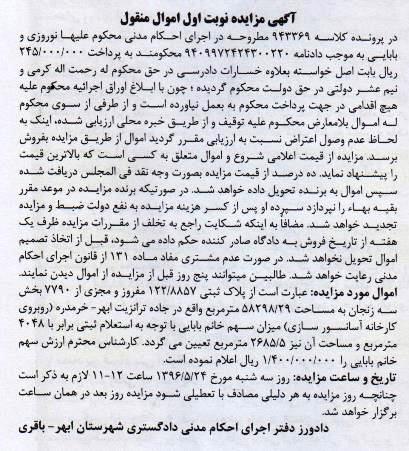 آگهی مزایده نوبت اول اموال منقول
در پرونده کلاسه ۹۴۳۳۶۹ مطروحه در اجرای احکام مدنی محکوم علیها نوروزی و
بابایی به موجب دادنامه ۹۴۰۹۹۷۲۴۲۴۳۰۰۲۲۰ محکومند به پرداخت ۲۴۵/۰۰۰/۰۰۰
ریال بابت اصل خواسته بعلاوه خسارات دادرسی در حق محکوم له رحمت اله کرمی و
نیم عشر دولتی در حق دولت محکوم گردیده ؛ چون با ابلاغ اوراق اجرائیه محکوم علیه
هیچ اقدامی در جهت پرداخت محکوم به بعمل نیاورده است و از طرفی از سوی محکوم
له اموال بلامعارض محکوم علیه توقیف و از طریق خبره محلی ارزیابی شده، اینک به
لحاظ عدم وصول اعتراض نسبت به ارزیابی مقرر گردید اموال از طریق مزایده بفروش
برسد. مزایده از قیمت اعلامی شروع و اموال متعلق به کسی است که بالاترین قیمت
را پیشنهاد نماید. ده درصد از قیمت مزایده بصورت وجه نقد فی المجلس دریافت شده
سپس اموال به برنده تحویل داده خواهد شد. در صورتیکه برنده مزایده در موعد مقرر
بقیه بهاء را نپردازد سپرده او پس از کسر هزینه مزایده به نفع دولت ضبط و مزایده
تجدید خواهد شد. مضافاً به اینکه شکایت راجع به تخلف از مقررات مزایده ظرف یک
هفته از تاریخ فروش به دادگاه صادر کننده حکم داده می شود، قبل از اتخاذ تصمیم
اموال تحویل نخواهد شد. در صورت عدم مشتری مفاد ماده ۱۳۱ از قانون اجرای احکام
مدنی رعایت خواهد شد. طالبین میتوانند پنج روز قبل از مزایده از اموال دیدن نمایند.
اموال مورد مزایده: عبارت است از پلاک ثبتی ۱۲۲/۸۸۵۷ مفروز و مجزی از ۷۷۹۰ بخش
سه زنجان به مساحت ۵۸۲۹۸/۲۹ مترمربع واقع در جاده ترانزیت ابهر- خرمدره (روبروی
کارخانه آسانسور سازی) میزان سهم خانم بابایی با توجه به استعلام ثبتی برابر با ۴۰۴۸
مترمربع و مساحت آن نیز ۲۶۸۵/۵ مترمربع تعیین می گردد. کارشناس محترم ارزش سهم
خانم بابایی را ۱/۴۰۰/۰۰۰/۰۰۰ ریال اعلام نموده است.
تاریخ و ساعت مزایده: روز سه شنبه مورخ ۱۳۹۶/۵/۲۴ ساعت ۱۲-۱۱ لازم به ذکر است
چنانچه روز مزایده به هر دلیلی مصادف با تعطیلی شود مزایده روز بعد در همان ساعت
برگزار خواهد شد.
دادورز دفتر اجرای احکام مدنی دادگستری شهرستان ابهر- باقری